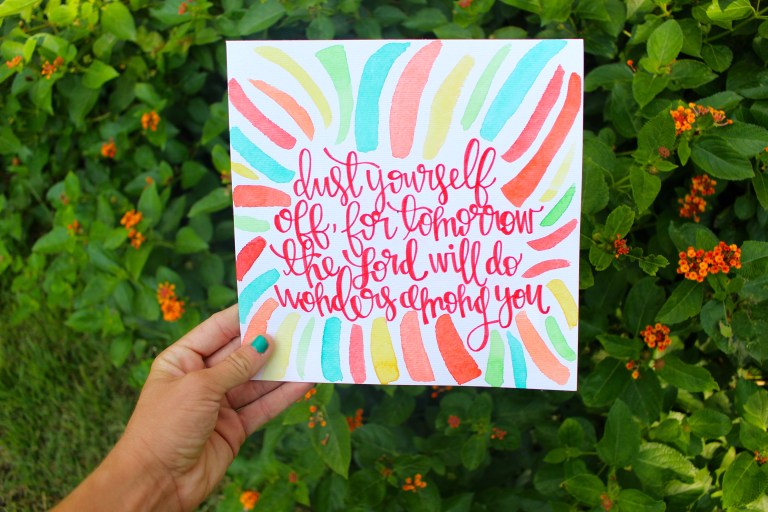 dust yourself
off, for tomorrow
the Lord will do
wonders among you